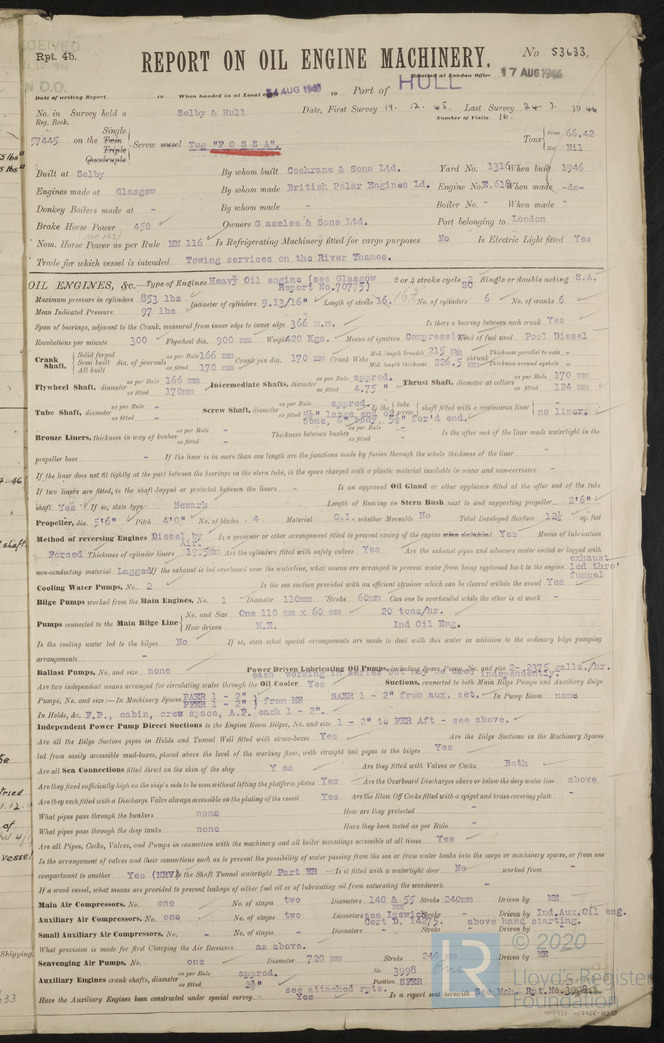 Rpt. 4b.
REPORT ON OIL ENGINE MACHINERY.
No 53633
Received at London Office 17 AUG 1946
Date of writing Report 19 When handed in at Local AUG 19 Port of HULL
No. in Survey held a Selby & Hull Date, First Survey 17. 12. 45. Last Survey 24. 7. 1946
Reg. Book. Number of Visits 16.
57445 on the Single Twin Triple Quadruple Screw vessel Tug "FOSSA". Tons Gross 66.42 Net Nil
Built at Selby By whom built Cochrane & Sons Ltd. Yard No. 1316 When built 1946
Engines made at Glasgow By whom made British Polar Engines Ld. Engine No. E.618 When made -do-
Donkey Boilers made at - By whom made - Boiler No. - When made -
Brake Horse Power 450 Owners Gaselee & Sons Ltd. Port belonging to London
Nom. Horse Power as per Rule MN 116 Is Refrigerating Machinery fitted for cargo purposes No Is Electric Light fitted Yes
Trade for which vessel is intended Towing services on the River Thames.
OIL ENGINES, &c.—Type of Engines Heavy Oil engine (see Glasgow Report No.70775) 2 or 4 stroke cycle 2 SC Single or double acting S.A.
Maximum pressure in cylinders 853 lbs Diameter of cylinders 9.13/16" Length of stroke 16. No. of cylinders 6 No. of cranks 6
Mean Indicated Pressure 97 lbs
Span of bearings, adjacent to the Crank, measured from inner edge to inner edge 366 m.m. Is there a bearing between each crank Yes
Revolutions per minute 300 Flywheel dia. 900 mm Weight 420 Kgs. Means of ignition Compression Kind of fuel used Pool Diesel
Crank Shaft, Solid forged Semi built All built dia. of journals as per Rule 166 mm as fitted 170 mm Crank pin dia. 170 mm Crank Webs Mid. length breadth 215 mm Mid. length thickness 226.5 mm shrunk Thickness parallel to axis - Thickness around eyehole -
Flywheel Shaft, diameter as per Rule 166 mm as fitted 170mm Intermediate Shafts, diameter as per Rule approd. as fitted 4.75 " Thrust Shaft, diameter at collars as per Rule 170 mm as fitted 124 mm
Tube Shaft, diameter as per Rule - as fitted - Screw Shaft, diameter as per Rule approd. as fitted large end of cone, body, for'd end. Is the tube screw shaft fitted with a continuous liner no liner.
Bronze Liners, thickness in way of bushes as per Rule - as fitted - Thickness between bushes as per Rule - as fitted - Is the after end of the liner made watertight in the
propeller boss - If the liner is in more than one length are the junctions made by fusion through the whole thickness of the liner -
If the liner does not fit tightly at the part between the bearings in the stern tube, is the space charged with a plastic material insoluble in water and non-corrosive -
If two liners are fitted, is the shaft lapped or protected between the liners - Is an approved Oil Gland or other appliance fitted at the after end of the tube
shaft Yes If so, state type Newark Length of Bearing in Stern Bush next to and supporting propeller 2'6"
Propeller, dia. 5'6" Pitch 4'0" No. of blades 4 Material C.I. whether Moveable No Total Developed Surface 12½ sq. feet
Method of reversing Engines Diesel by Air. Is a governor or other arrangement fitted to prevent racing of the engine when declutched Yes Means of lubrication
Forced Thickness of cylinder liners 19.5mm Are the cylinders fitted with safety valves Yes Are the exhaust pipes and silencers water cooled or lagged with
non-conducting material Lagged If the exhaust is led overboard near the waterline, what means are arranged to prevent water from being syphoned back to the engine exhaust led thro' funnel
Cooling Water Pumps, No. 2 Is the sea suction provided with an efficient strainer which can be cleared within the vessel Yes
Bilge Pumps worked from the Main Engines, No. 1 Diameter 110mm Stroke 60mm Can one be overhauled while the other is at work -
Pumps connected to the Main Bilge Line No. and Size One 110 mm x 60 mm 20 tons/hr.
How driven M.E. Ind Oil Eng.
Is the cooling water led to the bilges No If so, state what special arrangements are made to deal with this water in addition to the ordinary bilge pumping
arrangements -
Ballast Pumps, No. and size none Power Driven Lubricating Oil Pumps, including Spare Pump, No. and size 2- 2375 galls./hr.
each working in series but may be used independently.
Are two independent means arranged for circulating water through the Oil Cooler Yes Suctions, connected to both Main Bilge Pumps and Auxiliary Bilge
Pumps, No. and size:—In Machinery Spaces PAER 1 - 2" FEER 1 - 2" from ME SAER 1 - 2" from aux. set. In Pump Room none
In Holds, &c. F.P., cabin, crew space, A.P. each 1 - 2".
Independent Power Pump Direct Suctions to the Engine Room Bilges, No. and size 1 - 2" to PER Aft - see above.
Are all the Bilge Suction pipes in Holds and Tunnel Well fitted with strum-boxes Yes Are the Bilge Suctions in the Machinery Spaces
led from easily accessible mud-boxes, placed above the level of the working floor, with straight tail pipes to the bilges Yes
Are all Sea Connections fitted direct on the skin of the ship Yes Are they fitted with Valves or Cocks Both
Are they fixed sufficiently high on the ship's side to be seen without lifting the platform plates Yes Are the Overboard Discharges above or below the deep water line above
Are they each fitted with a Discharge Valve always accessible on the plating of the vessel Yes Are the Blow Off Cocks fitted with a spigot and brass covering plate -
What pipes pass through the bunkers none How are they protected -
What pipes pass through the deep tanks none Have they been tested as per Rule -
Are all Pipes, Cocks, Valves, and Pumps in connection with the machinery and all boiler mountings accessible at all times Yes
Is the arrangement of valves and their connections such as to prevent the possibility of water passing from the sea or from water tanks into the cargo or machinery spaces, or from one
compartment to another Yes (NRV) Is the Shaft Tunnel watertight Part ER Is it fitted with a watertight door No worked from -
If a wood vessel, what means are provided to prevent leakage of either fuel oil or of lubricating oil from saturating the woodwork -
Main Air Compressors, No. one No. of stages two Diameters 140 & 55 Stroke 240mm Driven by ME
Auxiliary Air Compressors, No. one No. of stages two Diameters see Ipswich Stroke - Driven by Ind.Aux.Oil eng.
Cert D. 14275. above hand starting.
Small Auxiliary Air Compressors, No. - No. of stages - Diameters - Stroke - Driven by -
What provision is made for first Charging the Air Receivers as above.
Scavenging Air Pumps, No. one Diameter 720 mm Stroke 240 mm Driven by ME
Auxiliary Engines crank shafts, diameter as per Rule approd. as fitted 2½" No. 3998 Position SFER
see attached rpts.
Have the Auxiliary Engines been constructed under special survey Yes Is a report sent herewith See Mch. Rpt.No.3998.
© 2020
Lloyd's Register
Foundation
LR